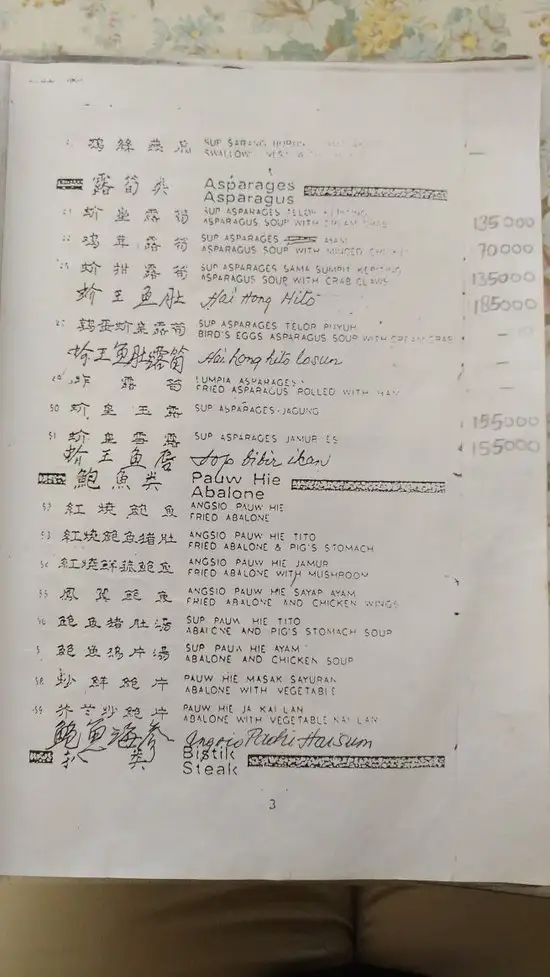 鷄絲燕 SUP SARANG
SWALLOW
露筍类 Asparages
Asparagus
蚧皇露筍 SUP ASPARAGES TELOR KEPITING 135000
ASPARAGUS SOUP WITH CREAM CRAB
鸡茸露筍 SUP ASPARAGES AYAM 70000
ASPARAGUS SOUP WITH MINCED CHICKEN
蚧柑露筍 SUP ASPARAGES SAMA SUMPIT KEPITING 135000
ASPARAGUS SOUP WITH CRAB CLAWS
蚧王魚肚 Hai Hong Hito 185000
鹑蛋蚧皇露筍 SUP ASPARAGES TELOP PUYUH –
BIRD'S EGGS ASPARAGUS SOUP WITH CREAM CRAB
蚧王魚肚露筍 Hai hong hito losun –
炸露筍 LUMPIA ASPARAGES –
FRIED ASPARAGUS ROLLED WITH HAM
50 蚧皇玉露 SUP ASPARAGES-JAGUNG 155000
51 蚧皇雪露 SUP ASPARAGES JAMUR ES 155000
蚧王魚唇 Sop bibir ikan
鮑魚类 Pauw Hie
Abalone
52 紅燒鮑魚 ANGSIO PAUW HIE
FRIED ABALONE
53 紅燒鮑魚猪肚 ANGSIO PAUW HIE TITO
FRIED ABALONE & PIG'S STOMACH
54 紅燒鮮菰鮑魚 ANGSIO PAUW HIE JAMUR
FRIED ABALONE WITH MUSHROOM
55 鳳翼鮑魚 ANGSIO PAUW HIE SAYAP AYAM
FRIED ABALONE AND CHICKEN WINGS
56 鮑魚猪肚湯 SUP PAUW HIE TITO
ABALONE AND PIG'S STOMACH SOUP
鮑魚鸡片湯 SUP PAUW HIE AYAM
ABALONE AND CHICKEN SOUP
58 炒鮮鮑片 PAUW HIE MASAK SAYURAN
ABALONE WITH VEGETABLE
59 芥兰炒鮑片 PAUW HIE JA KAI LAN
ABALONE WITH VEGETABLE KAI LAN
鮑魚海参 Angsio Pauhi Haisum
扒类 Bistik
Steak
3